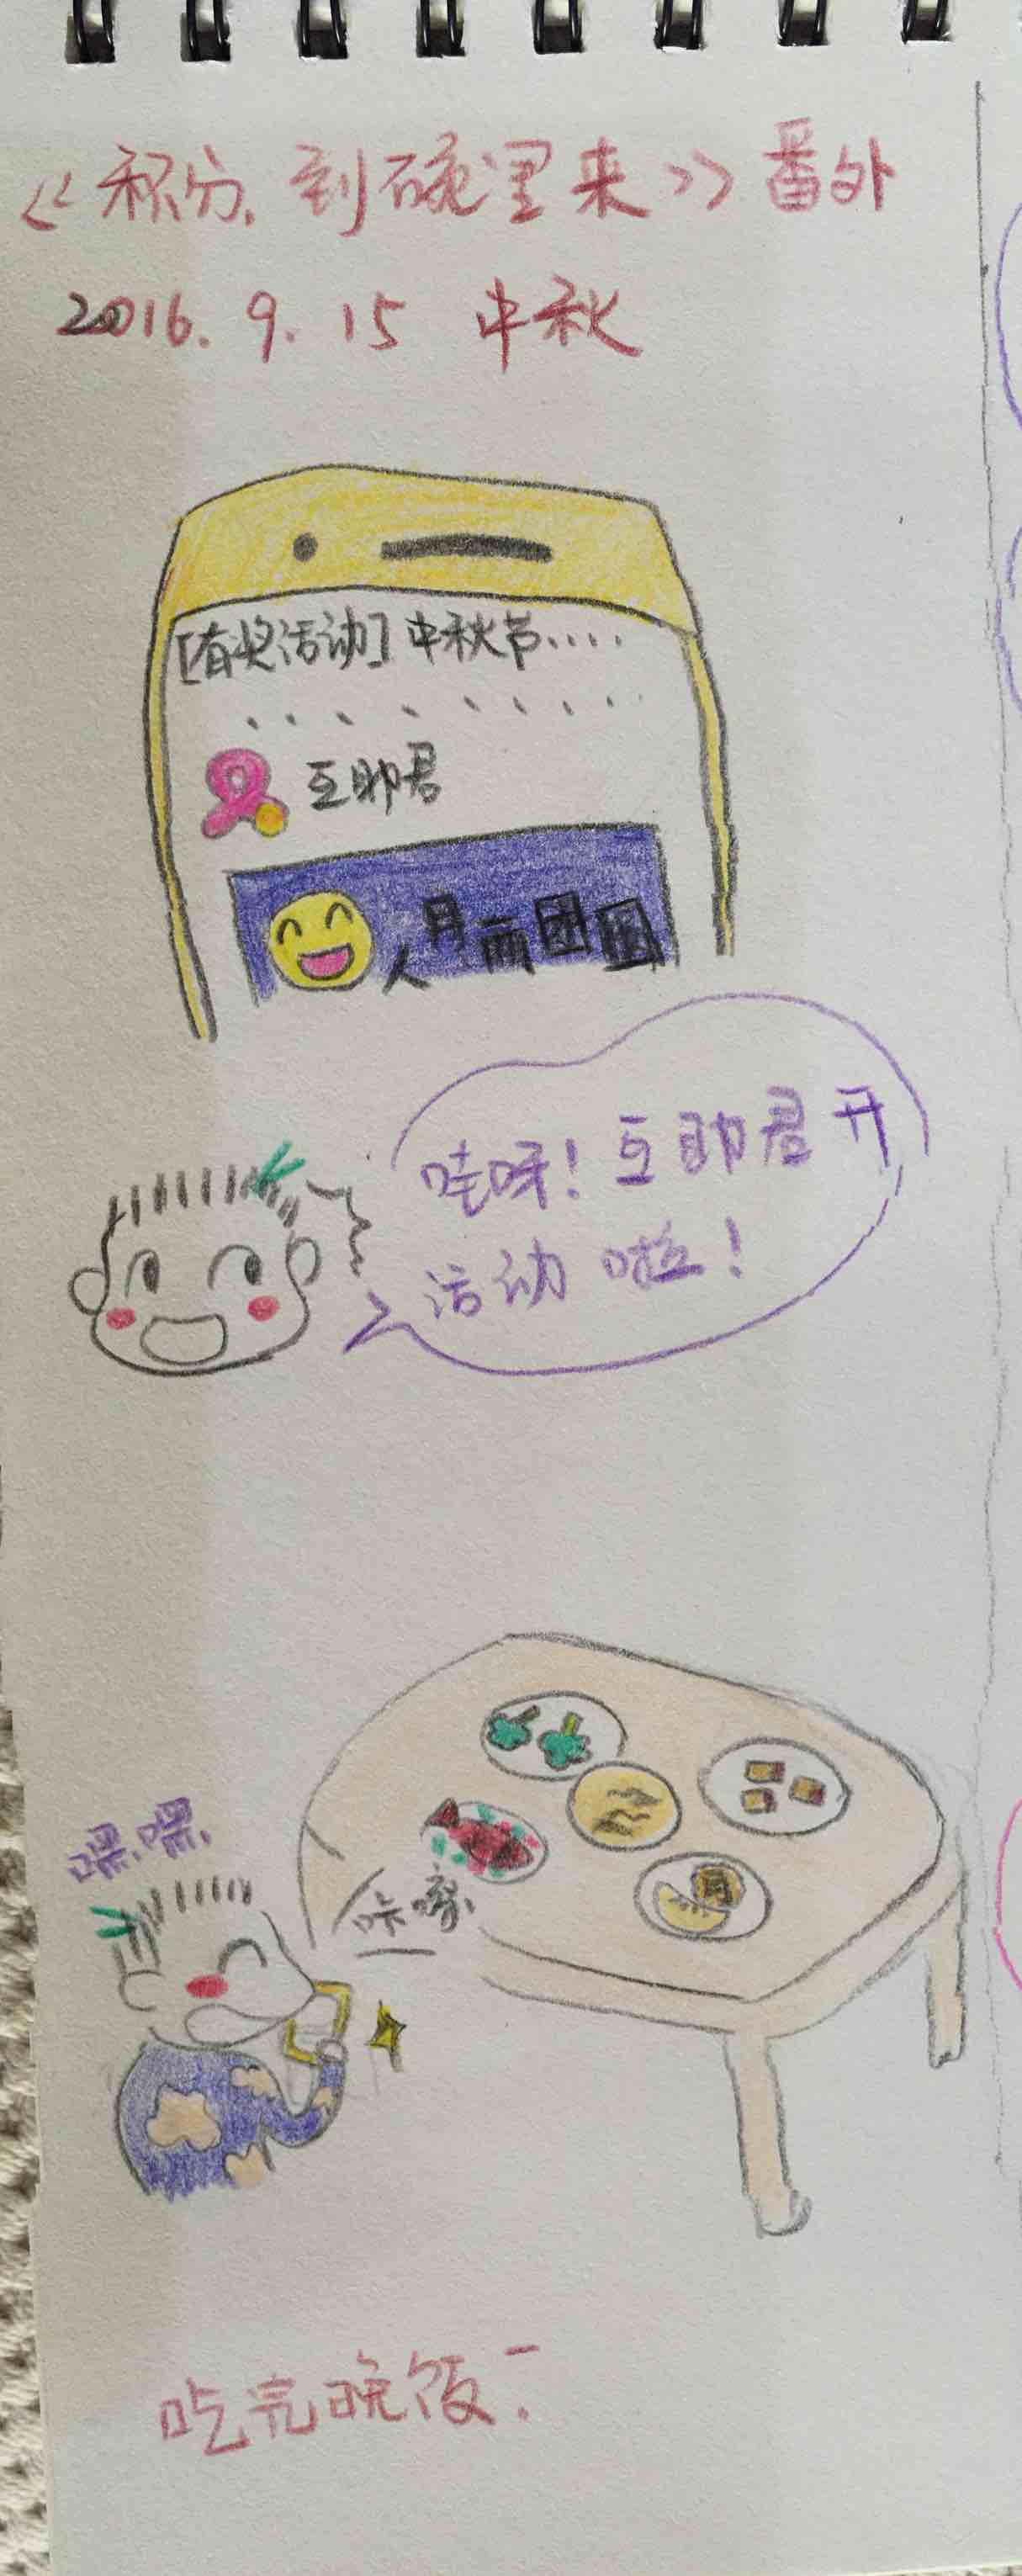 《积分,到碗里来》番外
2016.9.15 中秋
[有奖活动]中秋节....
互助君
人月两团圆
哇呀!互助君开
活动啦!
嘿.嘿.
咔嚓.
吃完晚饭: